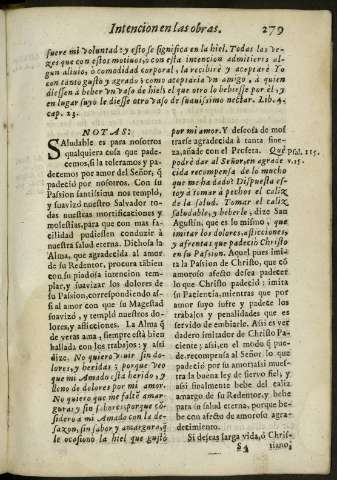 Intencion en las obras. 279
fuere mi voluntad: y esto se significa en la hiel. Todas las ve-
zes que con estos motivos, o con esta intencion admitieris al-
gun alivio, o comodidad corporal, la recibirè y aceptarè Yo
con tanto gusto, y agrado; como aceptaria vn amigo, à quien
diessen à beber vn vaso de hiel; el que otro lo bebiesse por èl, y
en lugar suyo le diesse otro vaso de suavissimo nectar. Lib. 4.
cap. 23.
NOTAS:
SAludable es para nosotros
qualquiera cosa que pade-
cemos, si la toleramos y pa-
decemos por amor del Señor, q̃
padeciò por nosotros. Con su
Passion santissima nos templò,
y suavizò nuestro Salvador to-
das nuestras mortificaciones y
molestias, para que con mas fa-
cilidad pudiessen conduzir à
nuestra salud eterna. Dichosa la
Alma, que agradecida al amor
de su Redentor, procura tãbien
con su piadosa intencion tem-
plar, y suavizar los dolores de
su Passion, correspondiendo af-
si al amor con que su Magestad
suavizò, y templò nuestros do-
lores, y aflicciones. La Alma q̃
de veras ama, siempre està bien
hallada con los trabajos; y assi
dize. No quiero vivir sin do-
lores, y heridas; porque veo
que mi Amado està herido, y
lleno de dolores por mi amor.
No quiero que me falte amar-
guras, y sin sabores; porque cõ-
sidero à mi Amado con la de-
sazon, sin sabor y amargura, q̃
le ocasionò la hiel que gustò
por mi amor. Y deseosa de mos-
trarse agradecida à tanta fine-
za, añade con el Profeta. Què
podrè dar al Señor, en agrade
cida recompensa de lo mucho
que me ha dado? Dispuesta es-
toy à tomar à pechos el caliz
de la salud. Tomar el caliz
saludable, y beberle, dize San
Agustin, que es lo mismo, que
imitar los dolores, aflicciones,
y afrentas que padeciò Christo
en su Passion. Aquel pues imi-
ta la Passion de Christo, que cõ
amoroso afecto desea padecer
lo que Christo padeciò: imita
su Paciencia, mientras que por
amor suyo sufre y padece los
trabajos y penalidades que es
servido de embiarle. Assi es ver
dadero imitador de Christo Pa-
ciente; assi, en el modo q̃ pue-
de, recompensa al Señor lo que
padeciò por su amor; assi mues-
tra la buena ley de siervo fiel, y
assi finalmente bebe del caliz
amargo de su Redentor, y bebe
para su salud eterna, porque be-
be con afecto de amoroso agra-
decimiento.
Si deseas larga vida, ò Chris-
psal. 115.
v. 15.
S 4 tiano;